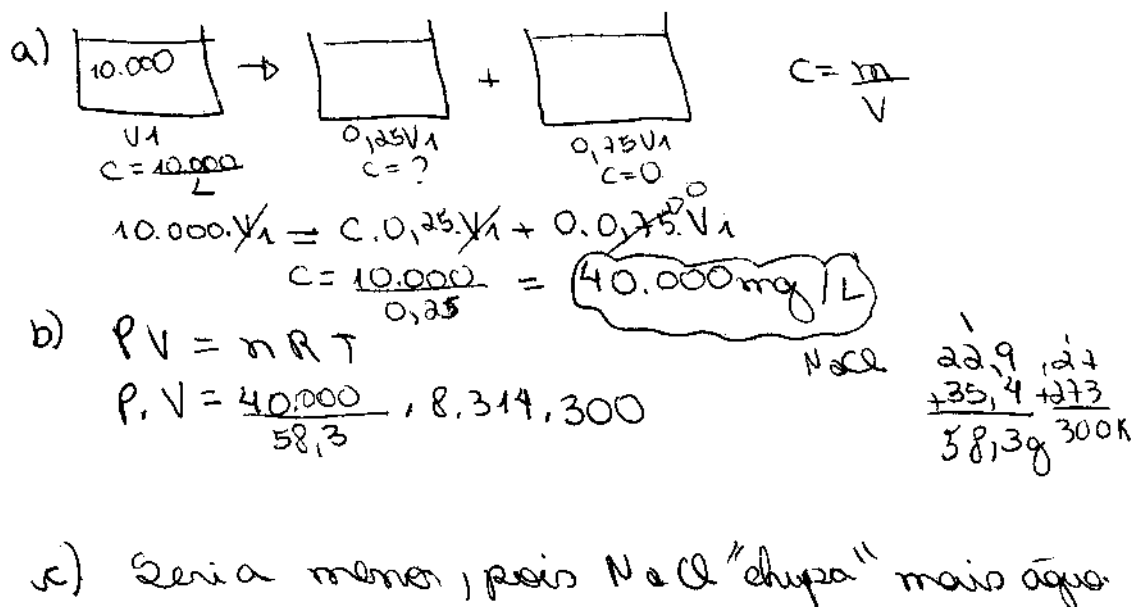 a) 10.000 → + C = m/V
V1 0,25V1 0,75V1
C = 10.000/L C = ? C = 0
10.000.V1 = C.0,25.V1 + 0.0,75.V1 0
C = 10.000/0,25 = 40.000 mg/L
b) PV = nRT
P.V = 40.000/58,3 . 8,314.300
NaCl 22,9 + 35,4 = 58,3g
1 27 + 273 = 300K
c) Seria menor, pois NaCl "chupa" mais água.